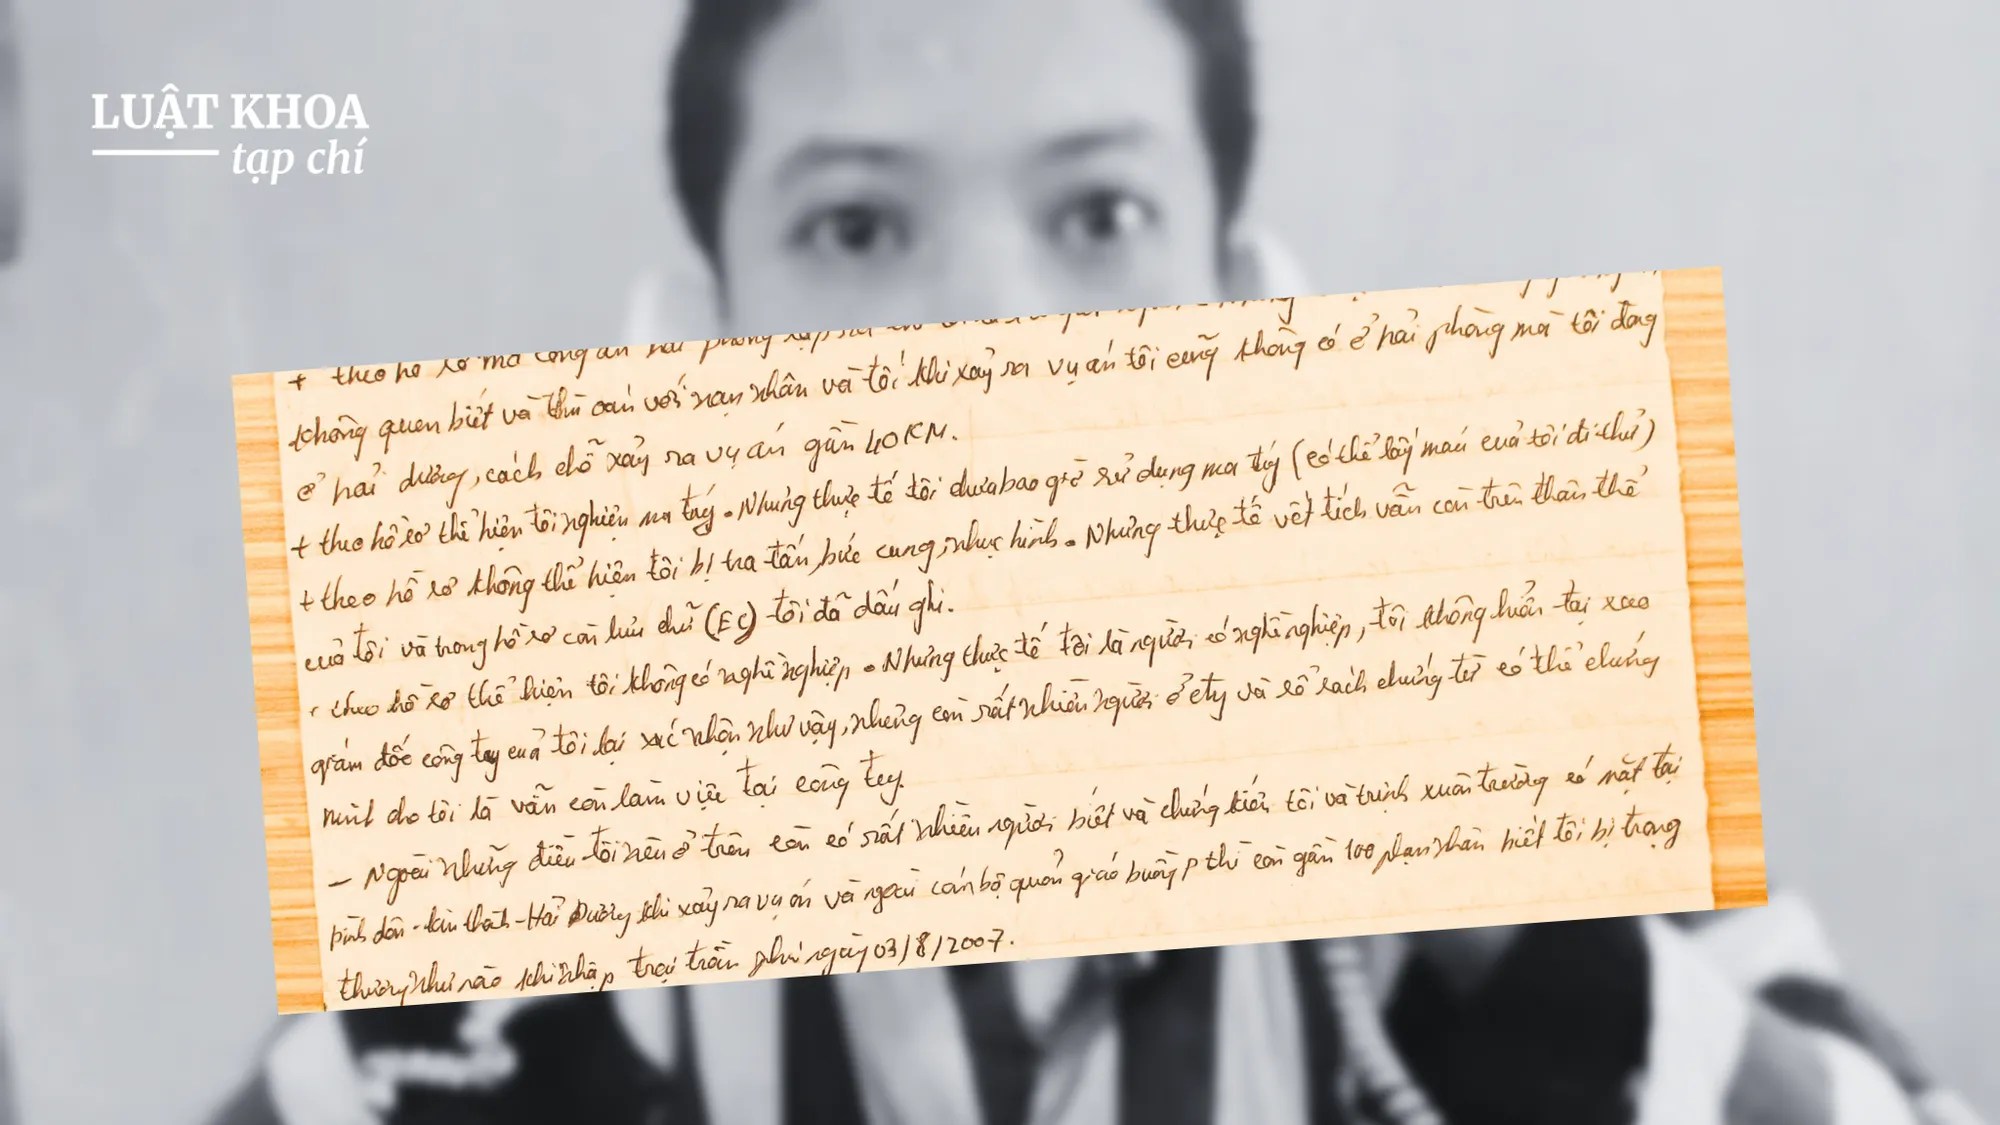 LUẬT KHOA
tạp chí
+ theo hồ sơ mà công an hải phòng lập
không quen biết và thù oán với nạn nhân và tôi khi xảy ra vụ án tôi cũng không có ở hải phòng mà tôi đang
ở hải dương, cách chỗ xảy ra vụ án gần 40KM.
+ theo hồ sơ thể hiện tôi nghiện ma túy. Nhưng thực tế tôi chưa bao giờ sử dụng ma túy (có thể lấy máu của tôi đi thử)
+ theo hồ sơ không thể hiện tôi bị tra tấn, bức cung, nhục hình. Nhưng thực tế vết tích vẫn còn trên thân thể
của tôi và trong hồ sơ còn lưu chữ (EC) tôi đã dấu ghi.
+ theo hồ sơ thể hiện tôi không có nghề nghiệp. Nhưng thực tế tôi là người có nghề nghiệp, tôi không hiểu tại sao
giám đốc công ty của tôi lại xác nhận như vậy, nhưng còn rất nhiều người ở cty và sổ sách chứng từ có thể chứng
minh cho tôi là vẫn còn làm việc tại công ty.
– Ngoài những điều tôi nêu ở trên còn có rất nhiều người biết và chứng kiến tôi và trịnh xuân trường có mặt tại
bình dân - kim thành - Hải Dương khi xảy ra vụ án và ngoài cán bộ quản giáo buồng P thì còn gần 100 phạm nhân biết tôi bị trọng
thương như nào khi nhập trại trần phú ngày 03/8/2007.